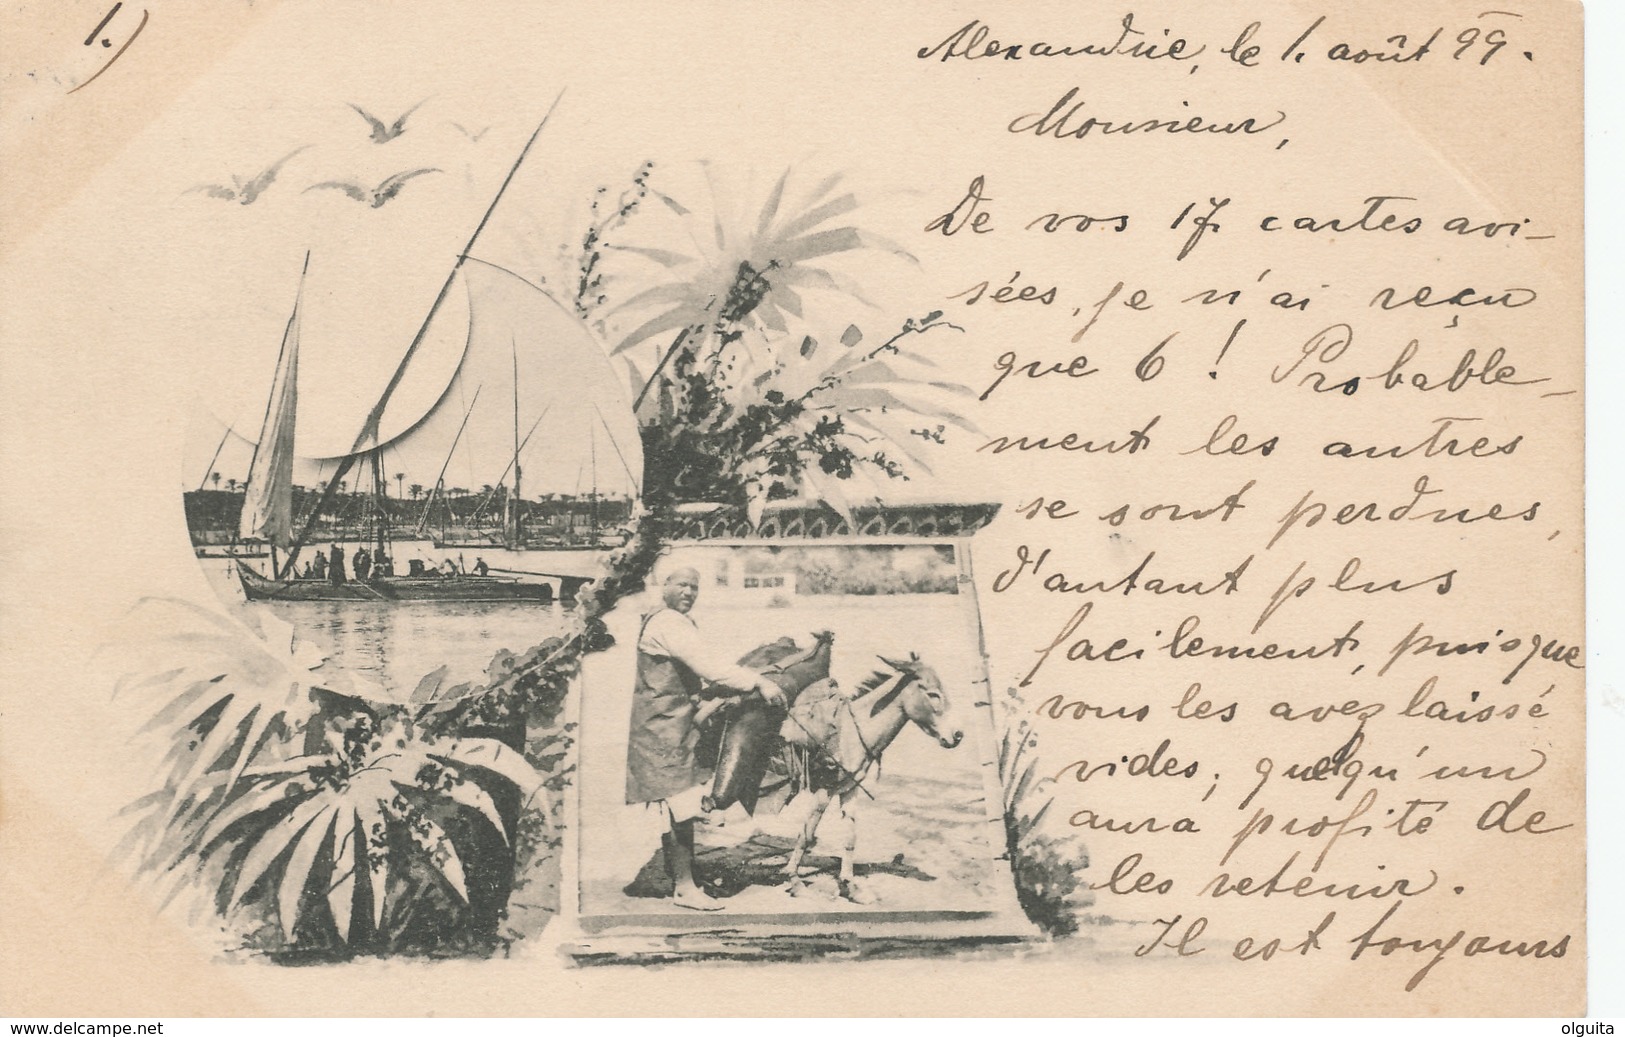 1.)
Alexandrie, le 1. août 99.
Monsieur,
De vos 17 cartes avi-
sées, je n'ai reçu
que 6 ! Probable-
ment les autres
se sont perdues,
d'autant plus
facilement, puisque
vous les avez laissé
vides; quelqu'un
aura profité de
les retenir.
Il est toujours
www.delcampe.net
olguita